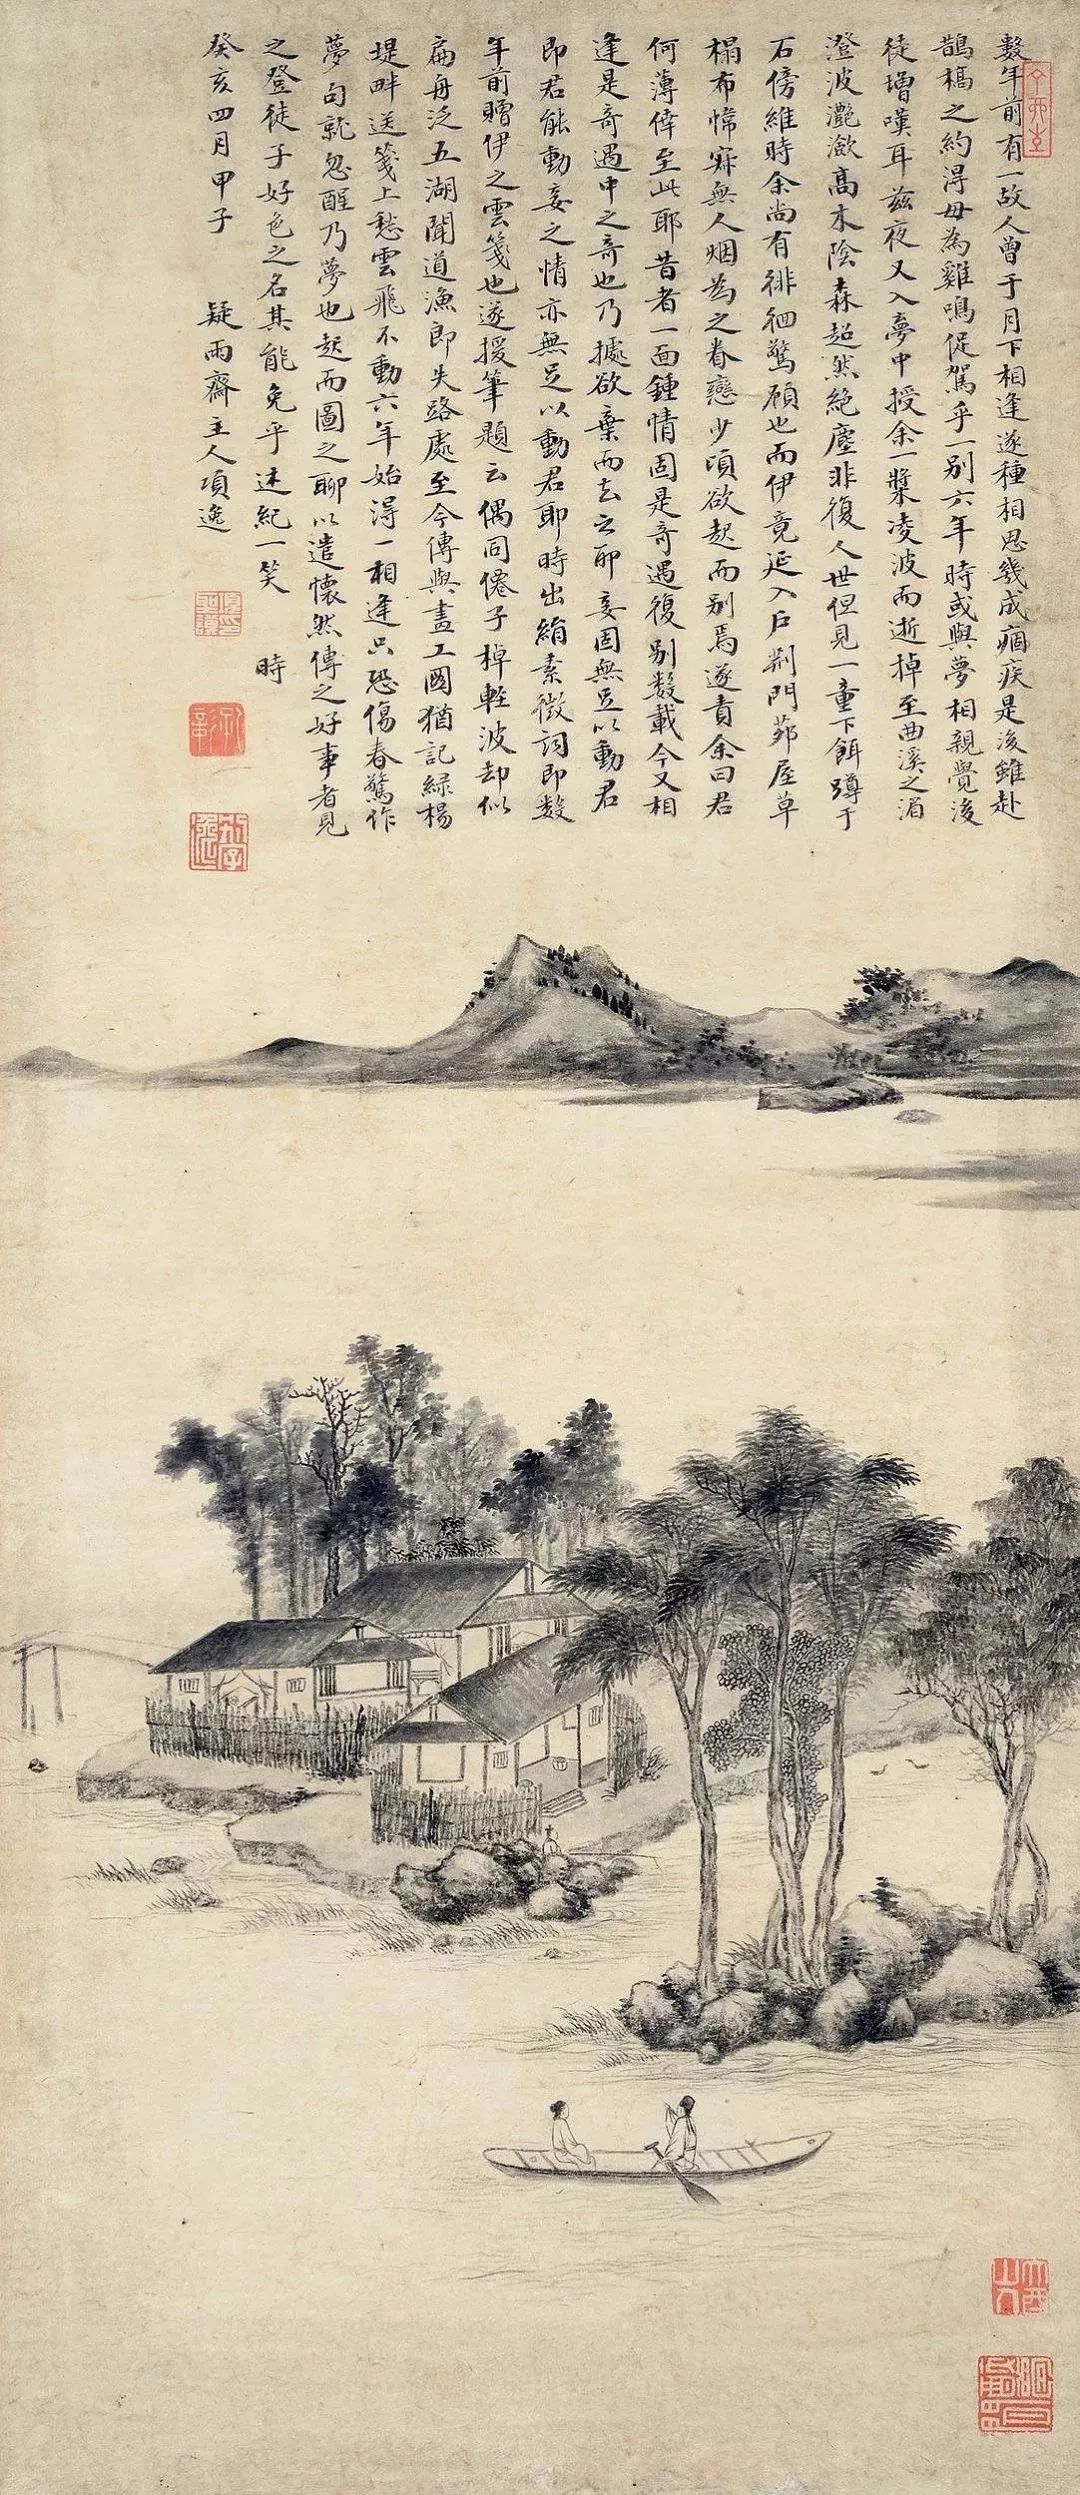 數年前有一故人曾于月下相逢遂種相思幾成痼疾是後雖赴
鵲橋之約得毋為雞鳴促駕乎一別六年時或與夢相親覺後
徒增嘆耳茲夜又入夢中授余一槳凌波而逝棹至西溪之湄
澄波灔瀲高木陰森超然絕塵非復人世但見一童下餌蹲于
石傍維時余尚有徘徊驚顧也而伊竟延入戶荊門茆屋草
榻布幃寂無人烟為之眷戀少頃欲起而別焉遂責余曰君
何薄倖至此耶昔者一面鍾情固是奇遇復別数載今又相
逢是奇遇中之奇也乃據欲棄而去之耶妾固無足以動君
即君能動妾之情亦無足以動君耶時出絹素徵詞即数
年前贈伊之雲箋也遂援筆題云偶同僊子棹輕波却似
扁舟泛五湖聞道漁郎失路處至今傳與畫工國猶記綠楊
堤畔送箋上愁雲飛不動六年始得一相逢只恐傷春驚作
夢句就忽醒乃夢也起而圖之聊以遣懷然傳之好事者見
之登徒子好色之名其能免乎述紀一笑 時
癸亥四月甲子 疑雨齋主人項逸